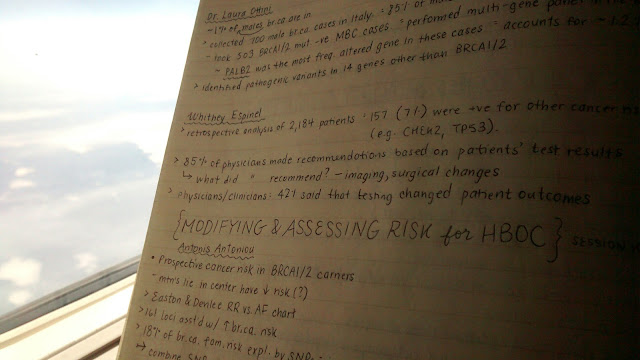 Dr. Laura Ottini
~1% of males br.ca. are in
> collected 700 male br.ca. cases in Italy. = 85% of
- took 503 BRCA1/2 mut -ve MBC cases = performed multi-gene panel
~ PALB2 was the most freq. altered gene in these cases = accounts for ~1.2
> identified pathogenic variants in 14 genes other than BRCA1/2
Whitney Espinel
> retrospective analysis of 2,184 patients : 157 (7%) were +ve for other cancer
(e.g. CHEK2, TP53).
> 85% of physicians made recommendations based on patients' test results
↳ what did " recommend? - imaging, surgical changes
> physicians/clinicians: 42% said that testing changed patient outcomes
{MODIFYING & ASSESSING RISK for HBOC} SESSION
Antonis Antoniou
• Prospective cancer risk in BRCA1/2 carriers
- mtn's lie in center have ↓ risk (?)
> Easton & Devilee RR vs. AF chart
> 161 loci asst'd w/ ↑ br.ca. risk
> 18% of br.ca. fam. risk expl. by SNPs
↳ combine SNP